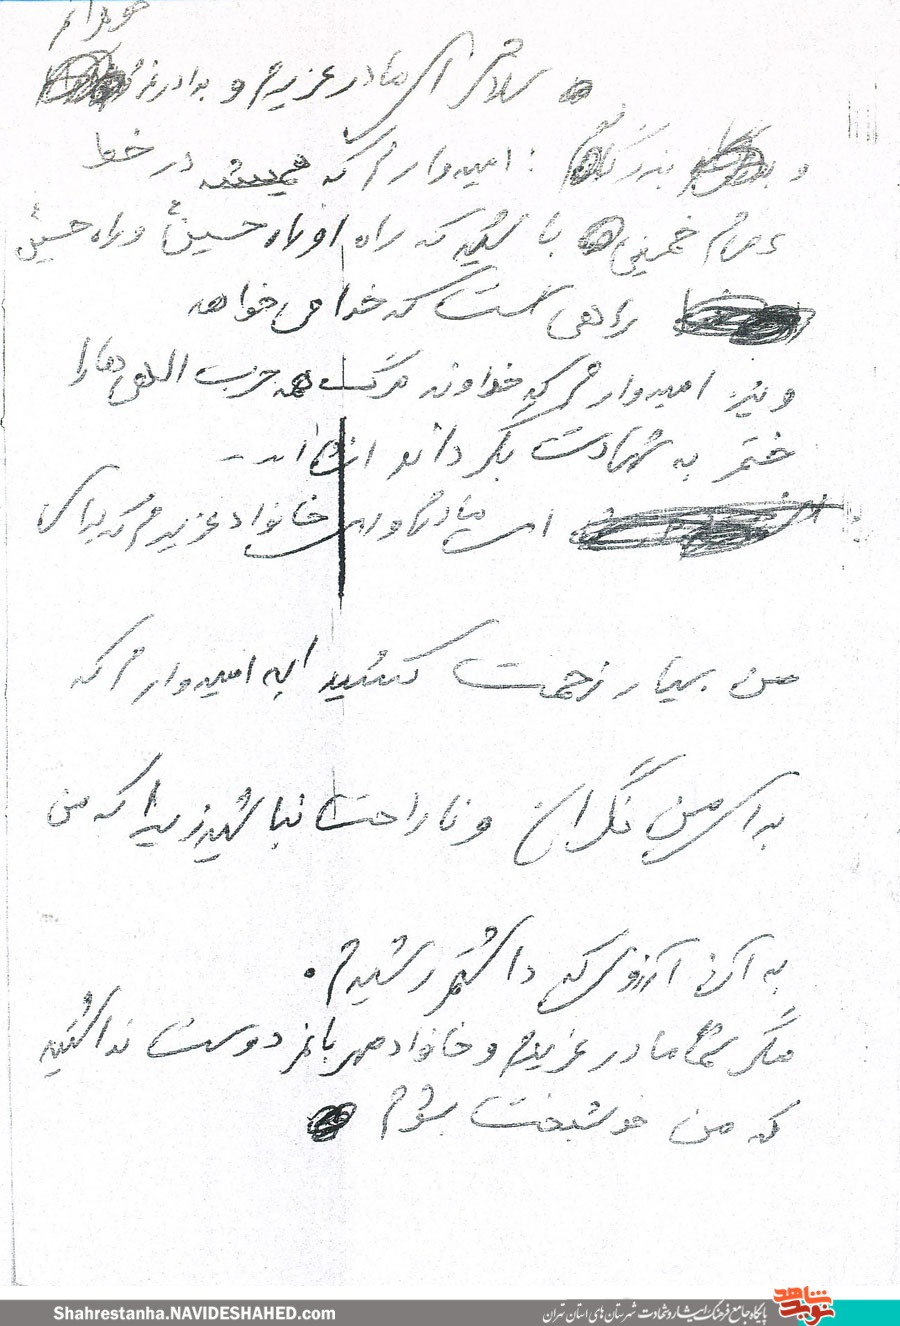 خواهرانم
سلام ای مادر عزیزم و برادرانم
و بزرگانم : امیدوارم که همیشه در خط
امام خمینی باشید که راه او راه حسین و راه حسین
راهی است که خدا می خواهد
و نیز امیدوارم که خداوند مرگ همه حزب اللهی ها را
ختم به شهادت بگرداند انشاا...
ای مادرم و ای خانواده عزیزم که برای
من بسیار زحمت کشیده اید امیدوارم که
برای من نگران و ناراحت نباشید زیرا که من
به آن آرزوی که داشتم رسیدم .
مگر شما مادر عزیزم و خانواده مهربانم دوست نداشتید
که من خوشبخت بشوم
نوید شاهد
پایگاه جامع فرهنگ ایثار و شهادت شهرستان های استان تهران
Shahrestanha.NAVIDESHAHED.com